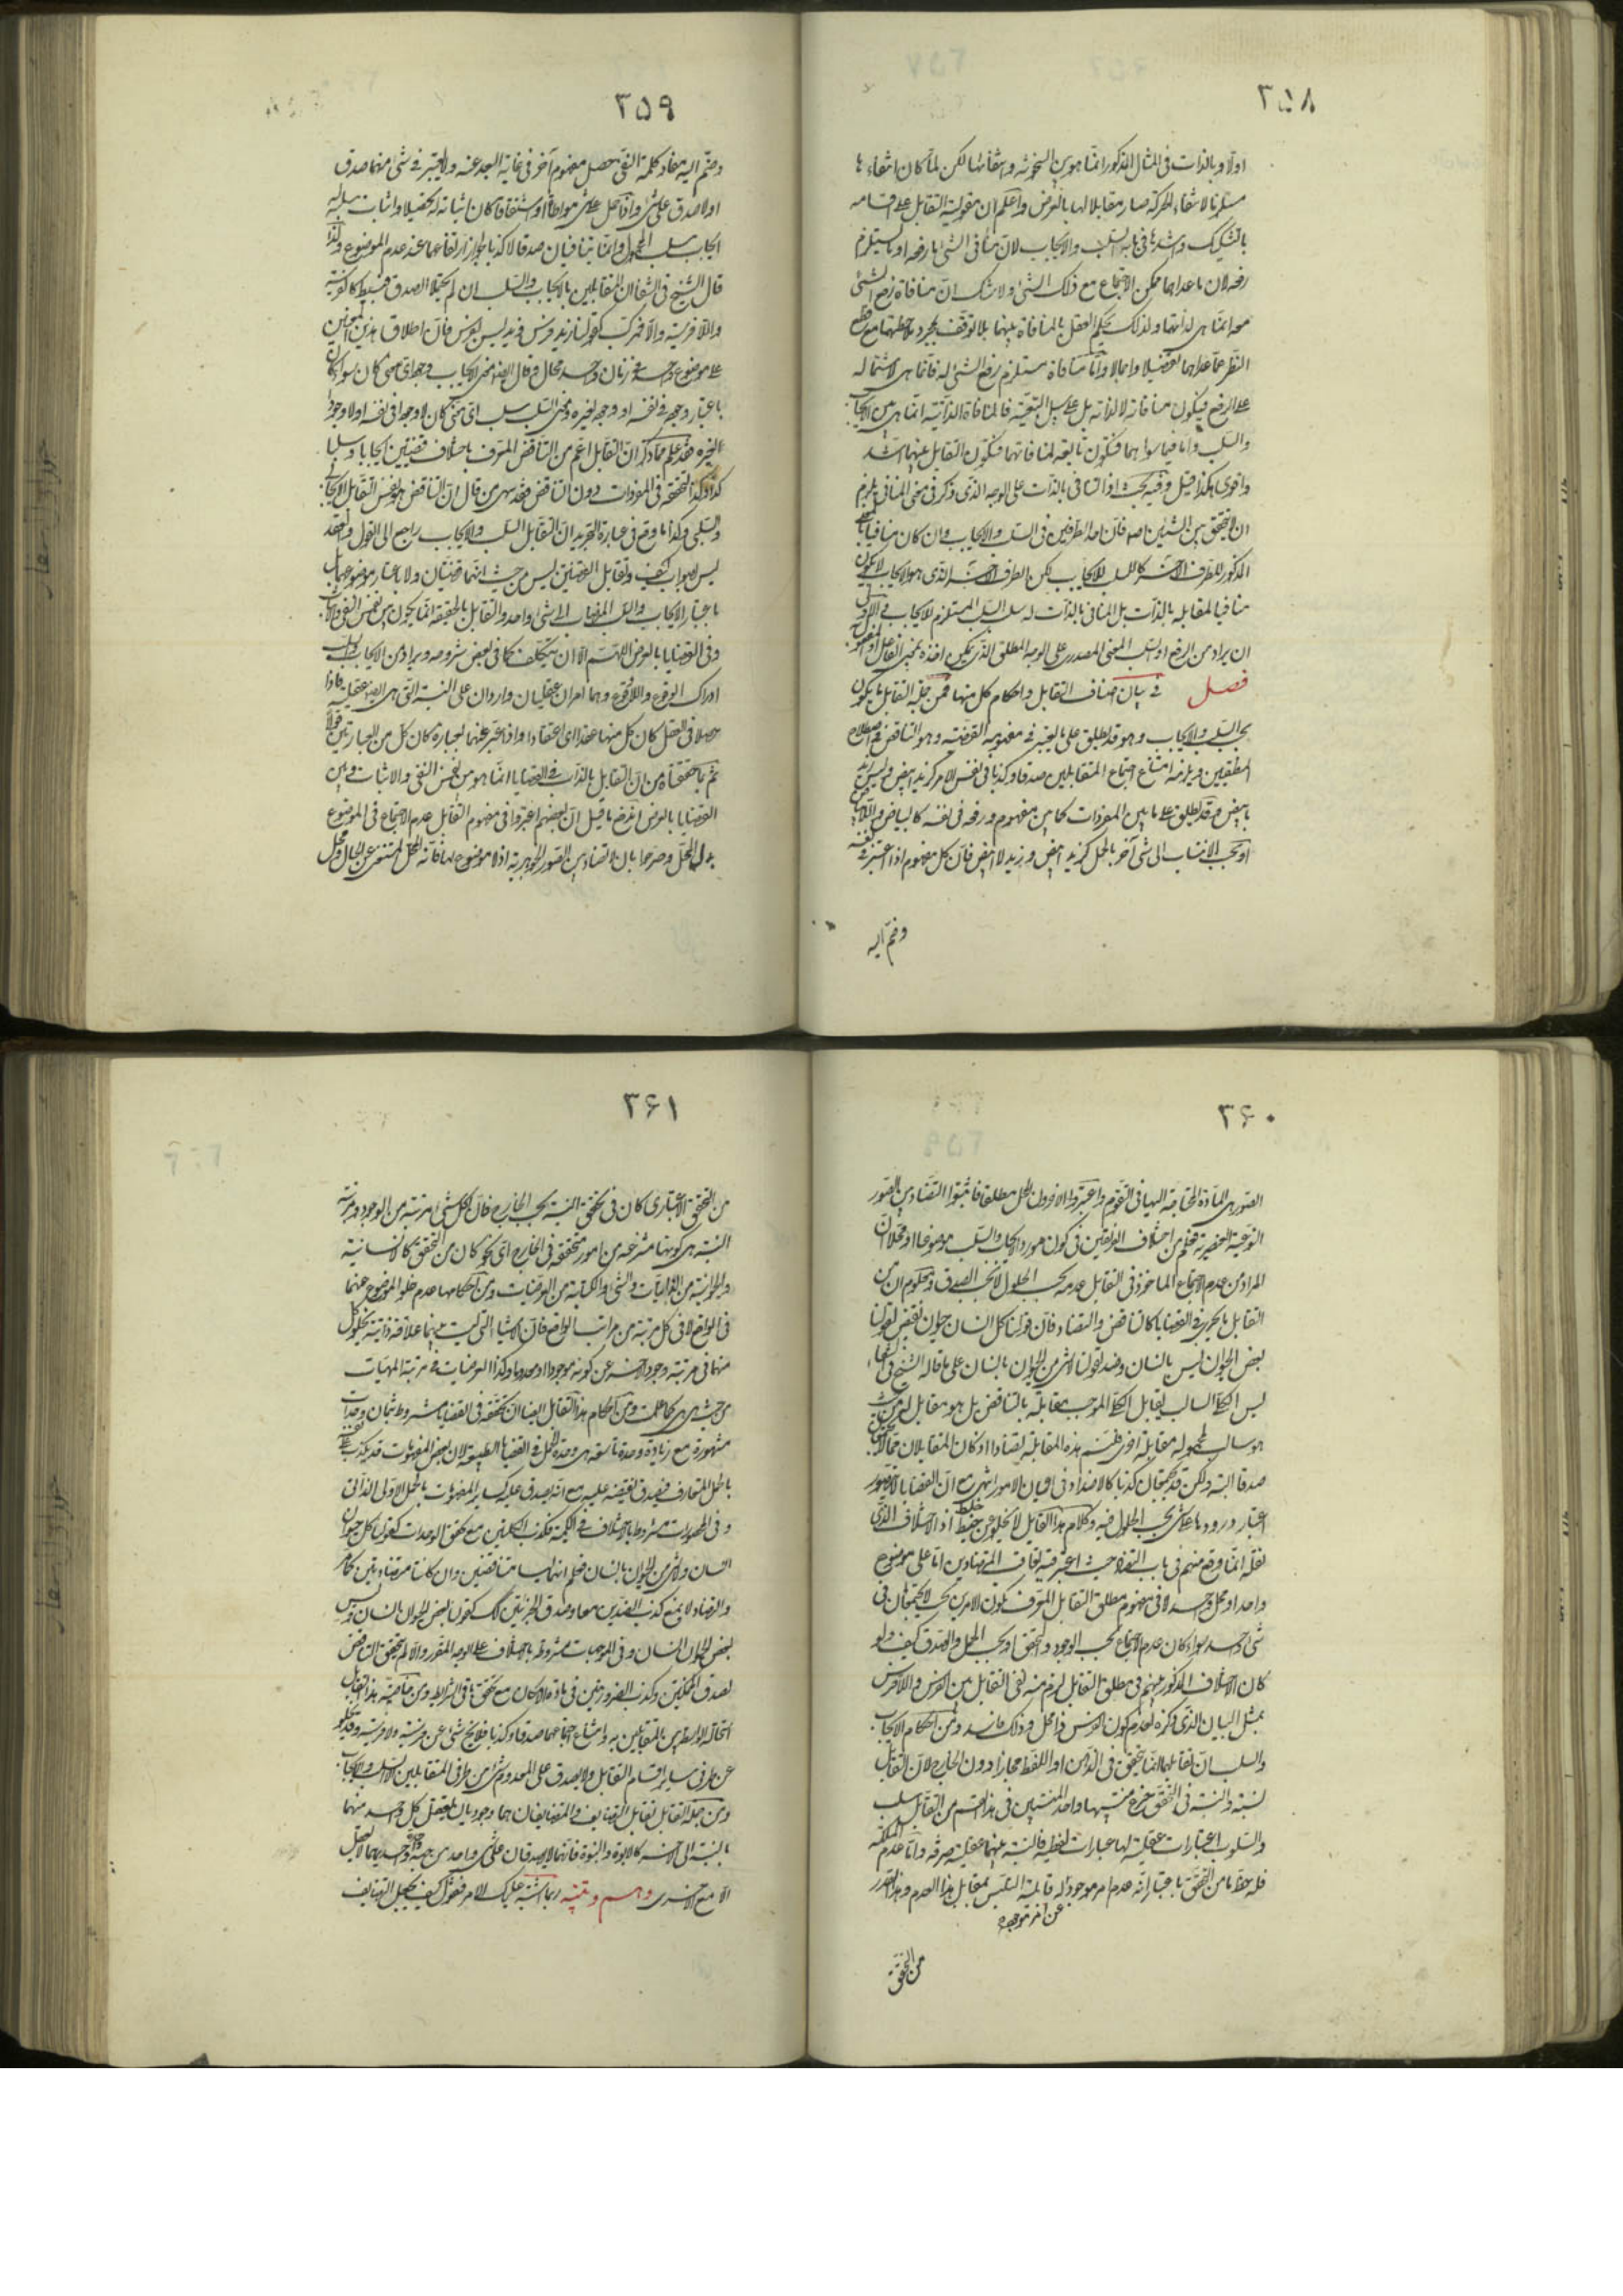 ٣٥٨
اولا وبالذات فى المثال المذكور انما هو بين السخونة وانتفائها لكن لما كان انتفاءها
مستلزما لانتفاء الحركة صار مقابلا لها بالعرض واعلم ان مقولية التقابل على اقسامه
بالتشكيك واشدها فى بابه السلب والايجاب لان منافى الشئ اما رفعه او ما يستلزم
رفعه لان ما عداهما ممكن الاجتماع مع ذلك الشئ ولا شك ان منافاة رفع الشئ
معه انما هى لذاتهما ولذلك يحكم العقل بالمنافاة بينهما بلا توقف بمجرد ملاحظتهما مع قطع
النظر عما عداهما تفصيلا واجمالا واما منافاة مستلزم رفع الشئ له فانما هى لاشتماله
على الرفع فيكون منافاته لا لذاته بل على سبيل التبعية فالمنافاة الذاتية انما هى بين الايجاب
والسلب واما فيما سواهما فتكون تابعة لمنافاتهما فيكون التقابل بينهما اشد
واقوى هكذا قيل وفيه بحث اذ المنافى بالذات على الوجه الذى ذكر فى معنى المنافى يلزم
ان لا يتحقق بين الشيئين اصلا فان احد الطرفين فى السلب والايجاب وان كان منافيا بالمعنى
المذكور للطرف الاخر كالسلب للايجاب لكن الطرف الاخر الذى هو الايجاب لا يكون
منافيا لمقابله بالذات بل المنافى بالذات له سلب السلب المستلزم للايجاب
ان يراد من الرفع او السلب المعنى المصدرى على الوجه المطلق الذى يمكن اخذه بمعنى الفاعل او المفعول
فصل فى بيان اصناف التقابل واحكام كل منها فمن جملة التقابل ما يكون
بحسب السلب والايجاب وهو قد يطلق على ما يعتبر فى مفهومه القضية وهو التناقض فى اصطلاح
المنطقيين ويلزمه امتناع اجتماع المتقابلين صدقا وكذبا فى نفس الامر كزيد ابيض وليس زيد
بابيض وقد يطلق على ما بين المفردات كما بين مفهوم ورفعه فى نفسه كالبياض واللابياض
او بحسب الانتساب الى شئ آخر بالحمل كزيد ابيض وزيد لا ابيض فان كل مفهوم اذا اعتبر فى نفسه
وضم اليه
٣٥٩
وضم اليه مفاد كلمة النفى حصل مفهوم آخر فى غاية البعد عنه ولا يعتبر فى شئ منهما صدق
او لا صدق على شئ واذا حمل على شئ مواطاة او اشتقاقا كان اثباته له تحصيلا واثبات سلبه له
ايجاب سلب المحمول وانما يتنافيان صدقا لا كذبا لجواز ارتفاعهما عند عدم الموضوع ولهذا
قال الشيخ فى الشفا ان المتقابلين بالايجاب والسلب ان لم يحتمل الصدق فبسيط كالفرسية
واللافرسية والا فمركب كقولنا زيد فرس زيد ليس بفرس فان اطلاق هذين المعنيين
على موضوع واحد فى زمان واحد محال وقال ايضا معنى الايجاب وجود اى معنى كان سواء كان
باعتبار وجوده فى نفسه او وجوده لغيره ومعنى السلب سلب اى معنى كان لا وجوده فى نفسه او لا وجوده
لغيره فقد علم مما ذكر ان التقابل اعم من التناقض المعرف باختلاف قضيتين ايجابا وسلبا
كذا وكذا لتحققه فى المفردات دون التناقض فقد سهى من قال ان التناقض هو نفس التقابل الايجابى
والسلبى وكذا ما وقع فى عبارة التجريد ان التقابل السلب والايجاب راجع الى القول والعقد
ليس بصواب كيف وتقابل القضيتين ليس من حيث انهما قضيتان ولا باعتبار موضوعهما بل
باعتبار الايجاب والسلب المضاف الى شئ واحد والتقابل بالحقيقة انما يكون بين نفس النفى والاثبات
وفى القضايا بالعرض اللهم الا ان يتكلف كما فى بعض شروحه ويراد من الايجاب والسلب
ادراك الوقوع واللاوقوع وهما امران عقليان واردان على النسبة التى هى ايضا عقلية فاذا
حصلا فى العقل كان كل منهما عقدا اى اعتقادا واذا عبر عنهما بعبارة كان كل من العبارتين قولا
ثم بما حققناه من ان التقابل بالذات فى القضايا انما هو بين نفس النفى والاثبات وبين
القضايا بالعرض اندفع ما قيل ان بعضهم اعتبروا فى مفهوم التقابل عدم الاجتماع فى الموضوع
بدل المحل وصرحوا بان لا تضاد بين الصور الجوهرية اذ لا موضوع لها فانه المحل المستغنى عن الحال ومحل
٣۶٠
الصور هى المادة المحتاجة اليها فى التقوم واعتبروا الاخرون المحل مطلقا فاثبتوا التضاد بين الصور
النوعية العنصرية فعلم من اختلاف الفريقين فى كون مورد الايجاب والسلب موضوعا او محلا ان
المراد من عدم الاجتماع الماخوذ فى التقابل عدمه بحسب الحلول لا بحسب الصدق ومعلوم ان من
التقابل ما يجرى فى القضايا كالتناقض والتضاد فان قولنا كل انسان حيوان نقيض لقولنا
بعض الحيوان ليس بانسان وضد لقولنا لا شئ من الحيوان بانسان على ما قاله الشيخ فى الشفاء
ليس الكلى السالب يقابل الكلى الموجب مقابلة بالتناقض بل هو مقابل له من حيث
هو سالب لمحموله مقابلة اخرى فلنسم هذه المقابلة تضادا اذ كان المتقابلان مما لا يجتمعان
صدقا البتة ولكن قد يجتمعان كذبا كالاضداد فى اعيان الامور انتهى مع ان القضايا لا يتصور
اعتبار ورودها على شئ بحسب الحلول فيه وكلام هذا القايل لا يخلو عن خبط خلط اذ الاختلاف الذى
نقله انما وقع منهم فى باب التضاد حيث اعتبر فيه تعاقب المتضادين اما على موضوع
واحد او محل واحد لا فى مفهوم مطلق التقابل المعرف بكون الامرين بحيث لا يجتمعان فى
شئ واحد سواء كان عدم الاجتماع بحسب الوجود والتحقق او بحسب الحمل والصدق كيف ولو
كان الاختلاف المذكور بينهم فى مطلق التقابل لزم منه نفى التقابل بين الفرس واللافرس
بمثل البيان الذى ذكره لعدم كون الفرس ذا محل وذلك فاسد ومن احكام الايجاب
والسلب ان تقابلهما انما يتحقق فى الذهن او اللفظ مجازا دون الخارج لان التقابل
نسبة والنسبة فى التحقق فرع منتسبيها واحد المنتسبين فى هذا القسم من التقابل سلب
والسلوب اعتبارات عقلية لها عبارات لفظية فالنسبة بينهما عقلية صرفة واما عدم الملكة
فله حظ ما من التحقق باعتبار انه عدم امر موجود له قابلية التلبس بمقابل هذا العدم وهذا القدر
عن امر موجود
من التحقق
٣۶١
من التحقق الاعتبارى كان فى تحقق النسبة بحسب الخارج فان لكل شئ مرتبة من الوجود ومرتبة
النسبة هى كونها منتزعة من امور متحققة فى الخارج اى نحو كان من التحقق كالانسانية
والحيوانية من الذاتيات والمشى والكتابة من العرضيات ومن احكامهما عدم خلو الموضوع عنهما
فى الواقع لا فى كل مرتبة من مراتب الواقع فان الاشياء التى ليست بينها علاقة ذاتية يخلو كل
منها فى مرتبة وجود الاخر عن كونه موجودا او معدوما وكذا العرضيات فى مرتبة المهيات
من حيث هى هى كما علمت ومن احكام هذا التقابل ايضا ان تحققه فى القضايا مشروط بثمان وحدات
مشهورة مع زيادة وحدة تاسعة هى وحدة الحمل فى القضايا الطبيعية لان بعض المفهومات قد يكذب على نفسه
بالحمل المتعارف فيصدق نقيضه عليه مع انه يصدق عليه كساير المفهومات بالحمل الاولى الذاتى
وفى المحصورات مشروط بالاختلاف فى الكمية لكذب الكليتين مع تحقق الوحدات كقولنا كل حيوان
انسان ولا شئ من الحيوان بانسان فعلم انهما ليستا متناقضتين وان كانتا متضادتين كما مر
والتضاد لا يمنع كذب الضدين معا وصدق الجزئيتين كذلك كقولنا بعض الحيوان انسان وليس
بعض الحيوان بانسان وفى الموجهات مشروط بالاختلاف على الوجه المقرر والا لم يتحقق التناقض
لصدق الممكنتين وكذب الضروريتين فى مادة الامكان مع تحقق باقى الشرايط ومن خاصية هذا التقابل
استحالة الواسطة بين المتقابلين به وامتناع اجتماعهما صدقا وكذبا فلا يخرج شئ عن فرسية ولا فرسية وقد يخلو
عن طرفى ساير اقسام التقابل ولا يصدق على المعدوم شئ من طرفى المتقابلين الا السلب والايجاب
ومن جملة التقابل تقابل التضايف والمتضايفان هما وجوديان يعقل كل واحد منهما
بالنسبة الى الاخر كالابوة والبنوة فانهما لا يصدقان على شئ واحد من جهة واحدة احدهما لا يعقل
الا مع الاخرى وهم وتنبيه ربما اشتبه عليك الامر فتقول كيف يجعل التضايف